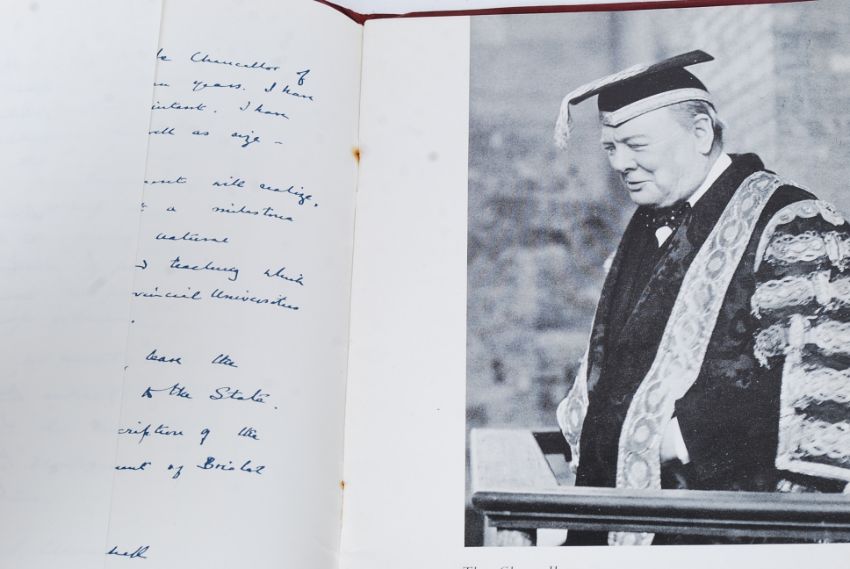 Chancellor of
years. I have
I have
as size –
will realize,
a milestone
natural
teaching which
Universities
leave the
to the State.
cription of the
of Bristol
The Chancellor